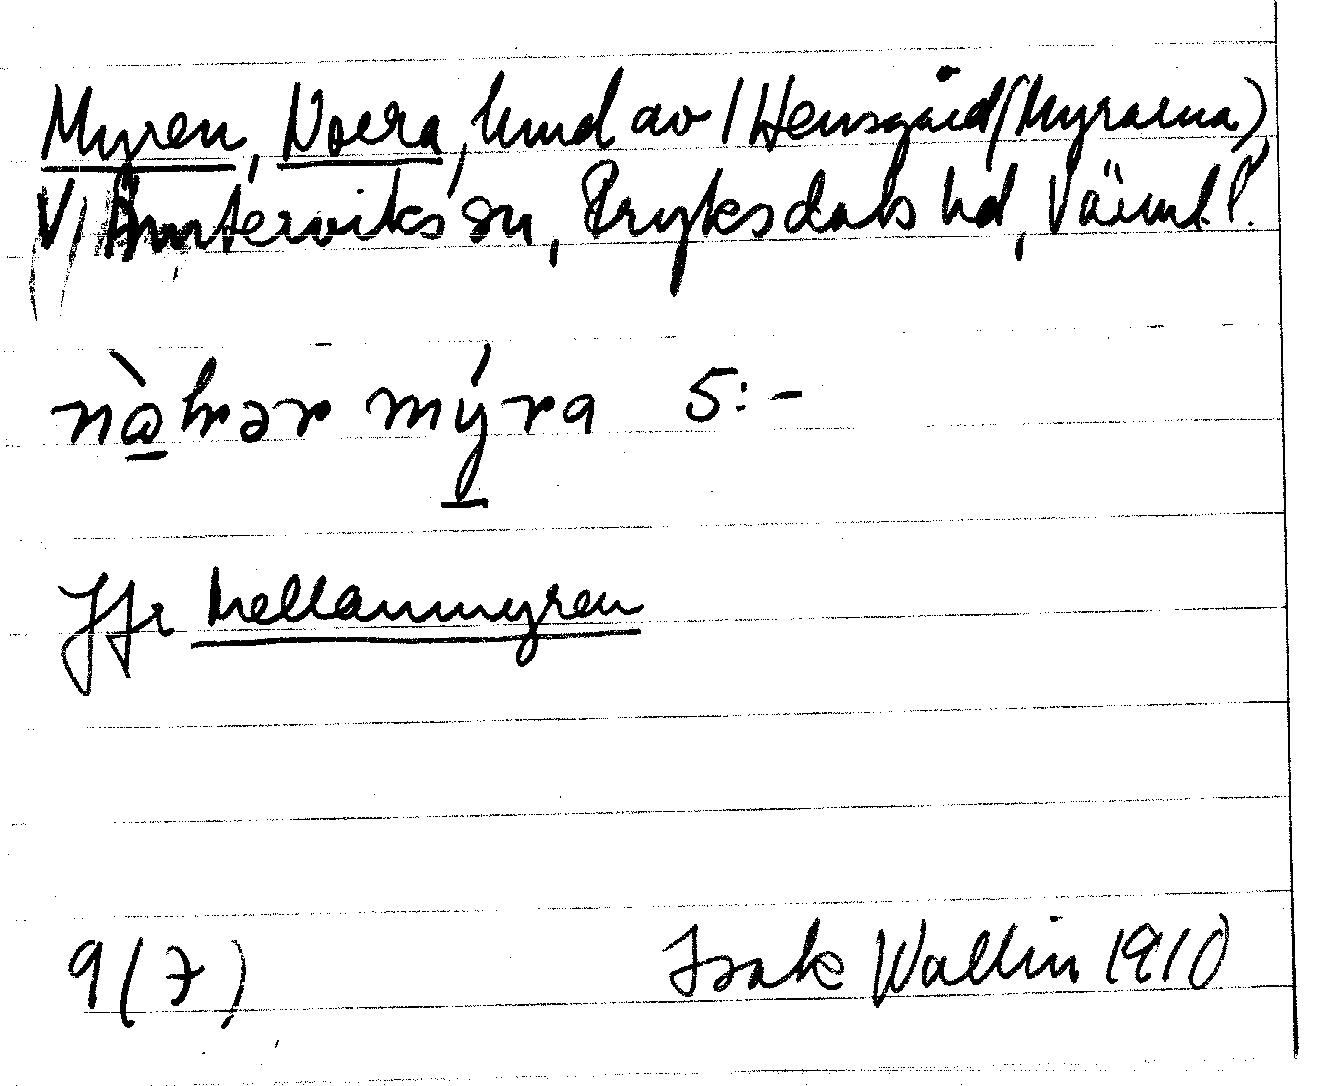 Myren, Norra, hmd av 1 Hensgård (Myrarna)
V. Ämterviks sn, Fryksdals hd, Värml.
nò̱hrər mý̱ra 5:-
Jfr Mellanmyren
9 (7) Isak Wallin 1910